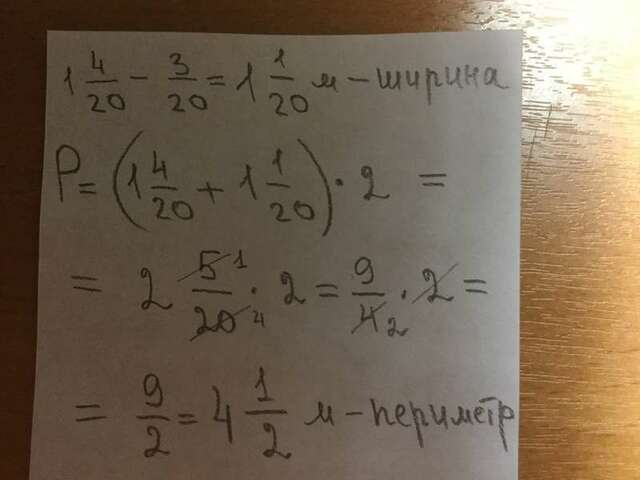 1 4/20 - 3/20 = 1 1/20 м - ширина
P = (1 4/20 + 1 1/20) · 2 =
= 2 5/20 1/4 · 2 = 9/4 2 · 2 =
= 9/2 = 4 1/2 м - периметр